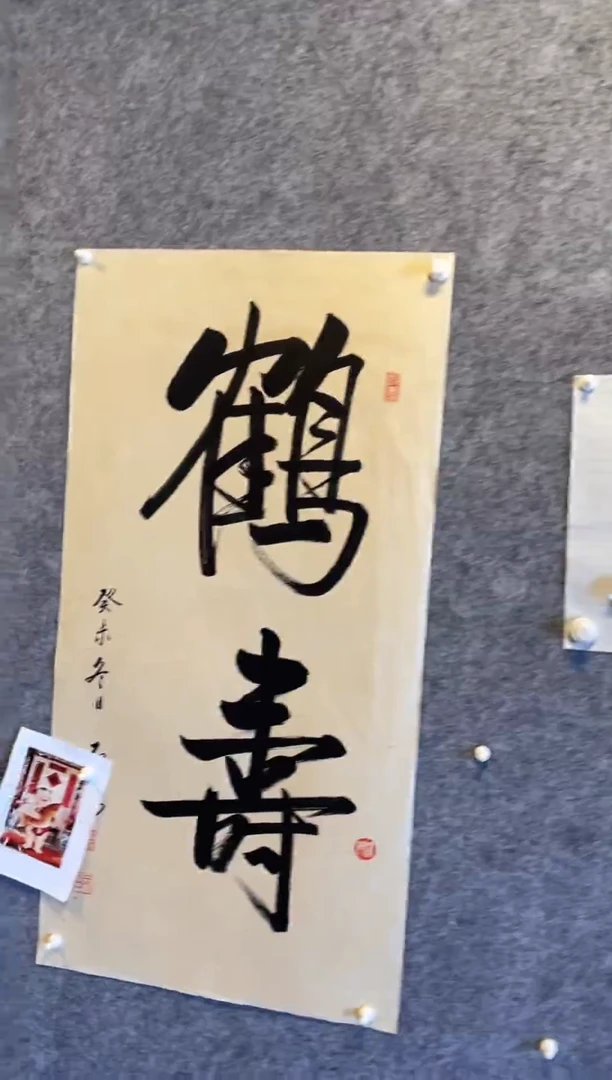 鶴壽
癸未冬日